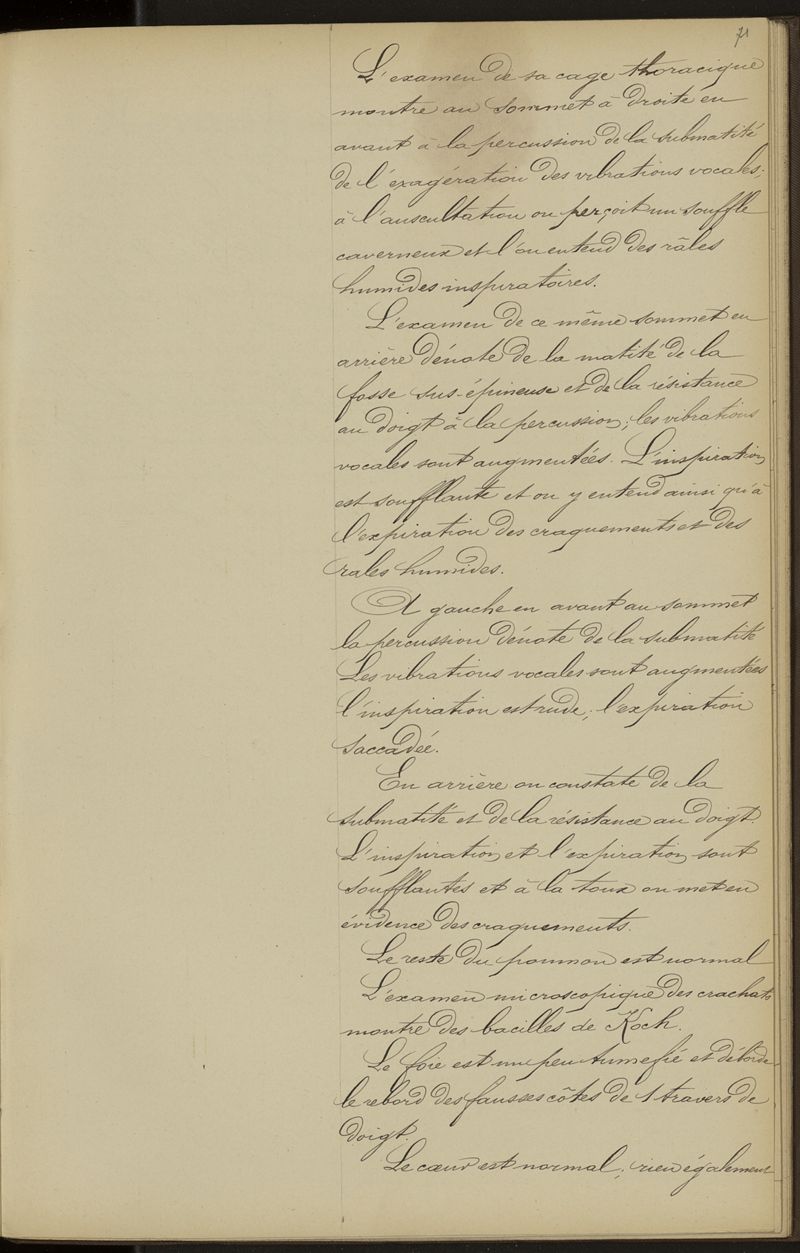 71
L'examen de sa cage thoracique
montre au sommet à droite en
avant à la percussion de la submatité
de l'exagération des vibrations vocales;
à l'auscultation on perçoit un souffle
caverneux et l'on entend des râles
humides inspiratoires.
L'examen de ce même sommet en
arrière dénote de la matité de la
fosse sus-épineuse et de la résistance
au doigt à la percussion; les vibrations
vocales sont augmentées. L'inspiration
est soufflante et on y entend ainsi qu'à
l'expiration des craquements et des
rales humides.
A gauche en avant au sommet
la percussion dénote de la submatité
Les vibrations vocales sont augmentées
l'inspiration est rude, l'expiration
saccadée.
En arrière on constate de la
submatité et de la résistance au doigt.
L'inspiration et l'expiration sont
soufflantes et à la toux on met en
évidence des craquements.
Le reste du poumon est normal
L'examen microscopique des crachats
montre des bacilles de Koch.
Le foie est un peu tumefié et déborde
le rebord des fausses côtes de 1 travers de
doigt.
Le cœur est normal; rien également